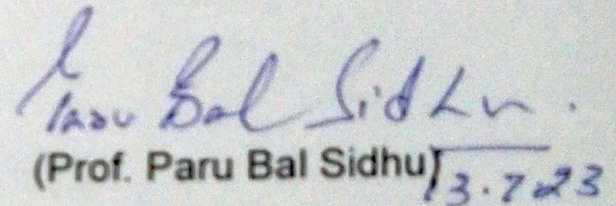 Paru Bal Sidhu.
(Prof. Paru Bal Sidhu)
13.7.23